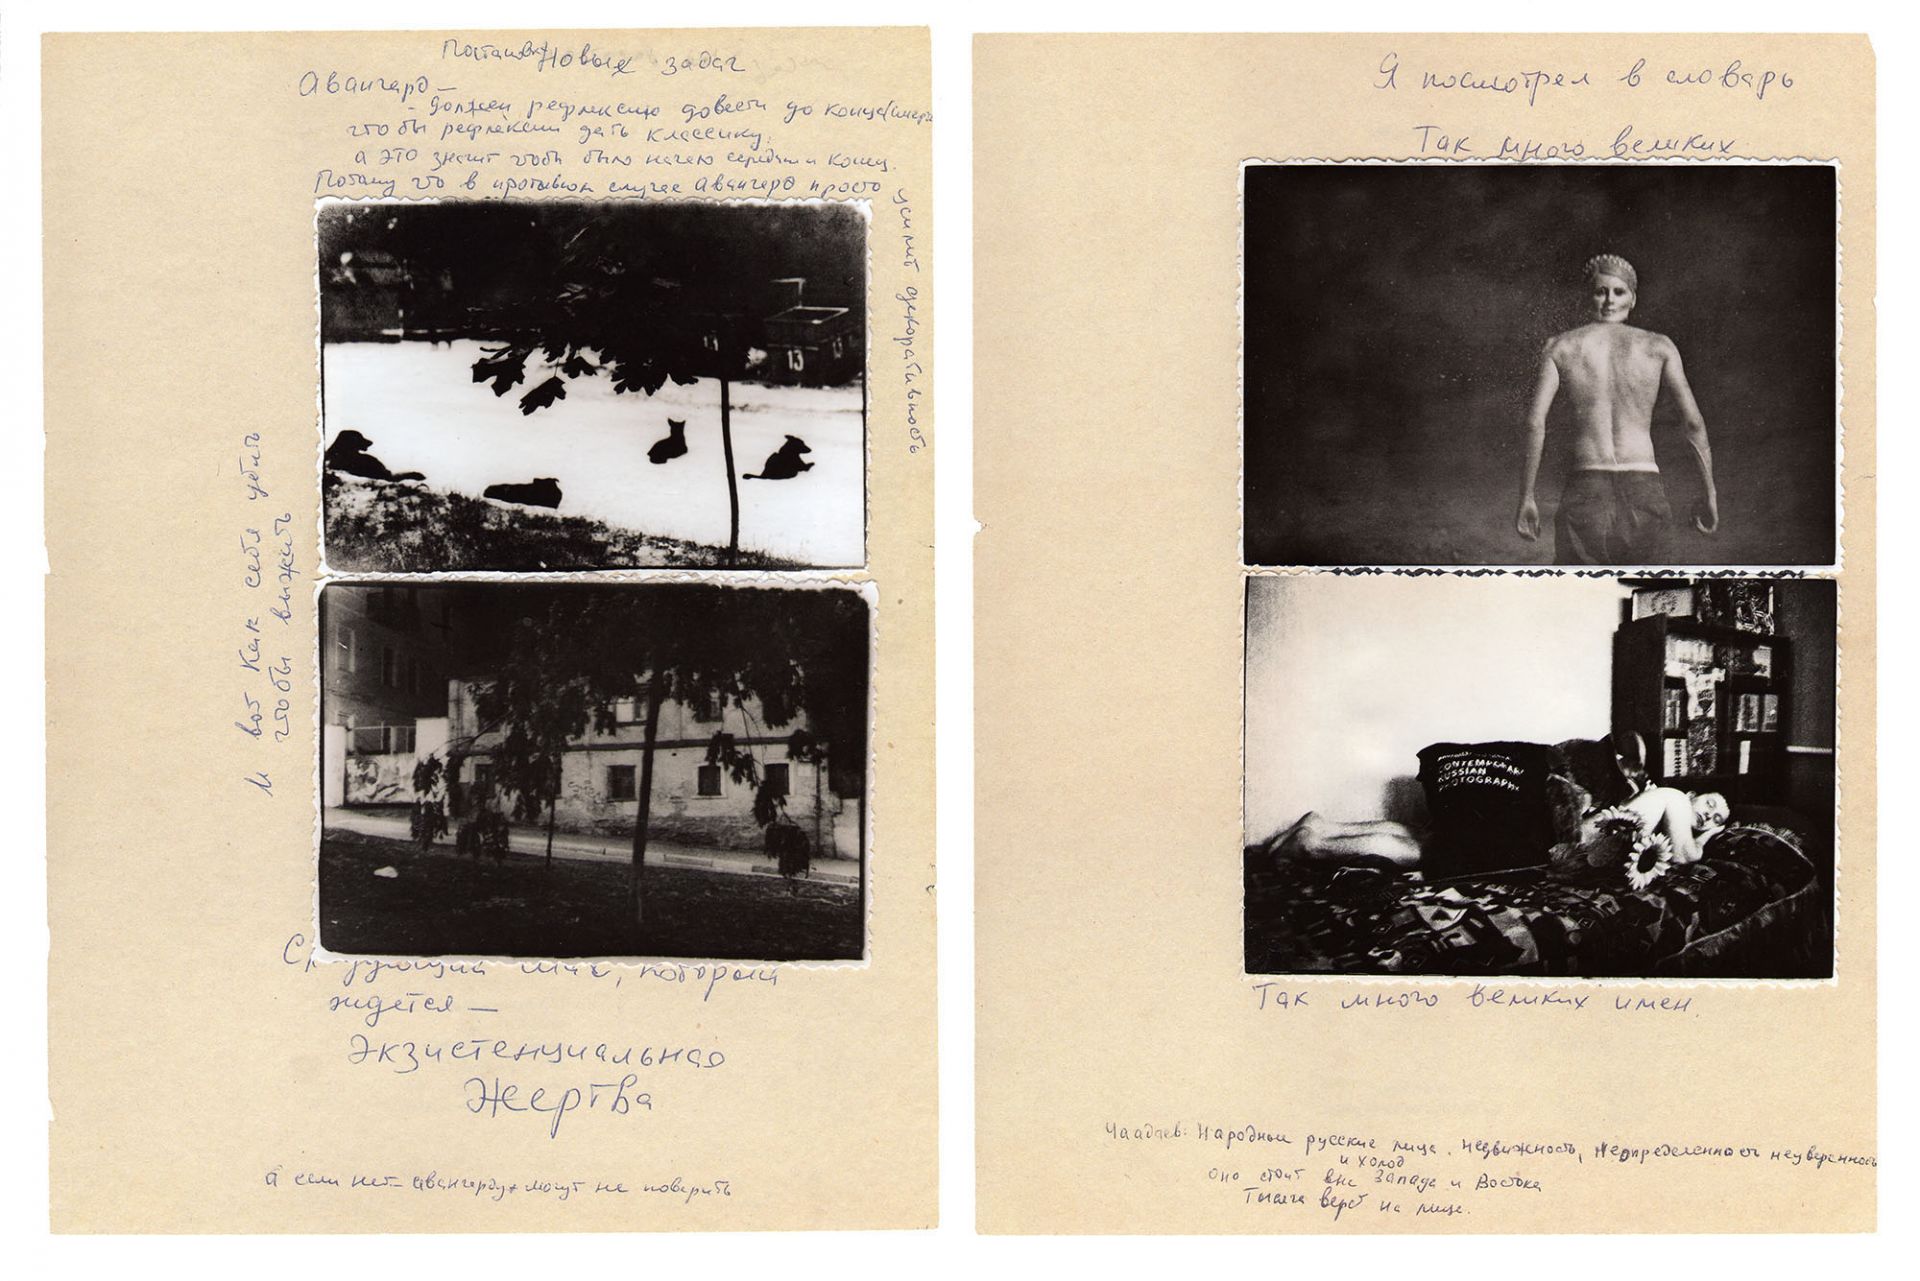 Постановка Новых задач
Авангард —
- должен рефлексию довести до конца
что бы рефлексии дать классику.
а это значит чтобы было начало середина и конец.
Потому что в противном случае Авангард просто
усилит декоративность
13
13
И вот как себя убить
чтобы выжить
который
ждется —
Экзистенциальная
Жертва
а если нет - авангарду могут не поверить
Я посмотрел в словарь
Так много великих
CONTEMPORARY
RUSSIAN
PHOTOGRAPHY
Так много великих имен.
Чаадаев: Народные русские лица. Недвижность, Неопределенность неуверенность
и холод
оно стоит вне Запада и Востока
Тысяча верст на лице.